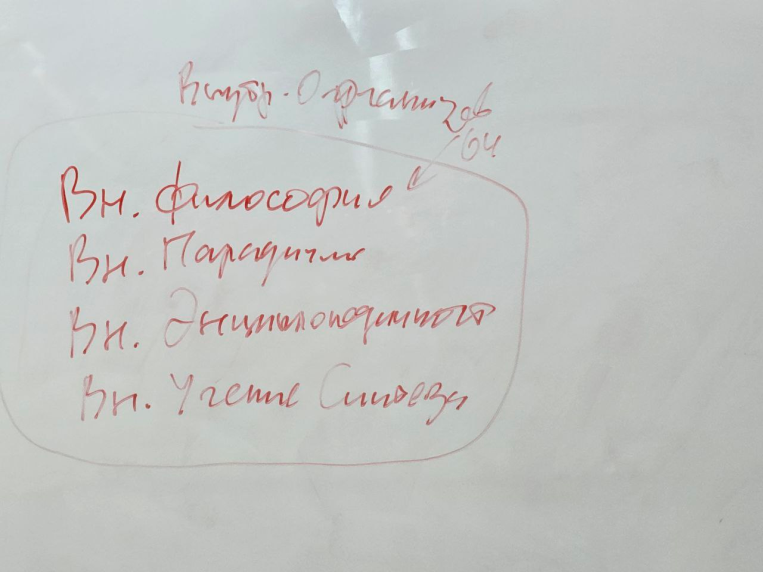 Внутр. Организов
64
Вн. философия
Вн. Парадигма
Вн. Энциклопедичность
Вн. Учение Синтеза